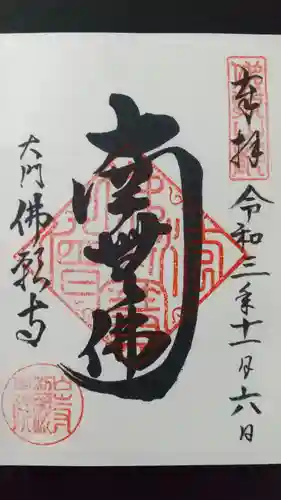 奉拝
令和三年十一月六日
南無佛
大門
佛願寺